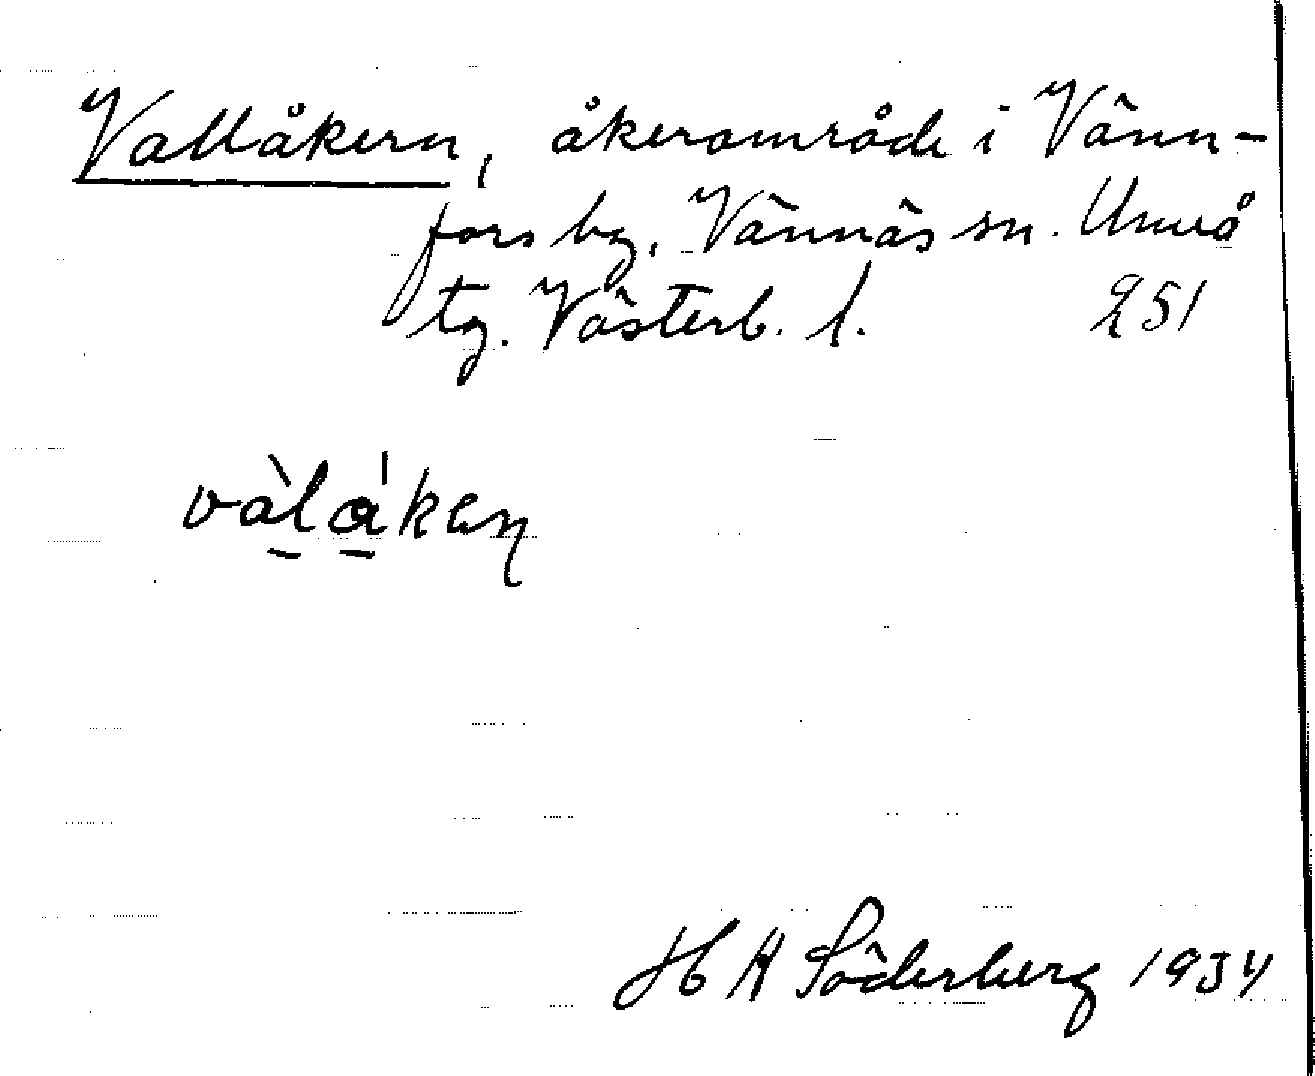 Vallåkern, åkerområde i Vänn-
fors by, Vännäs sn. Umeå
tg. Västerb. l. 251
vàlákeṇ
H A Söderberg 1934